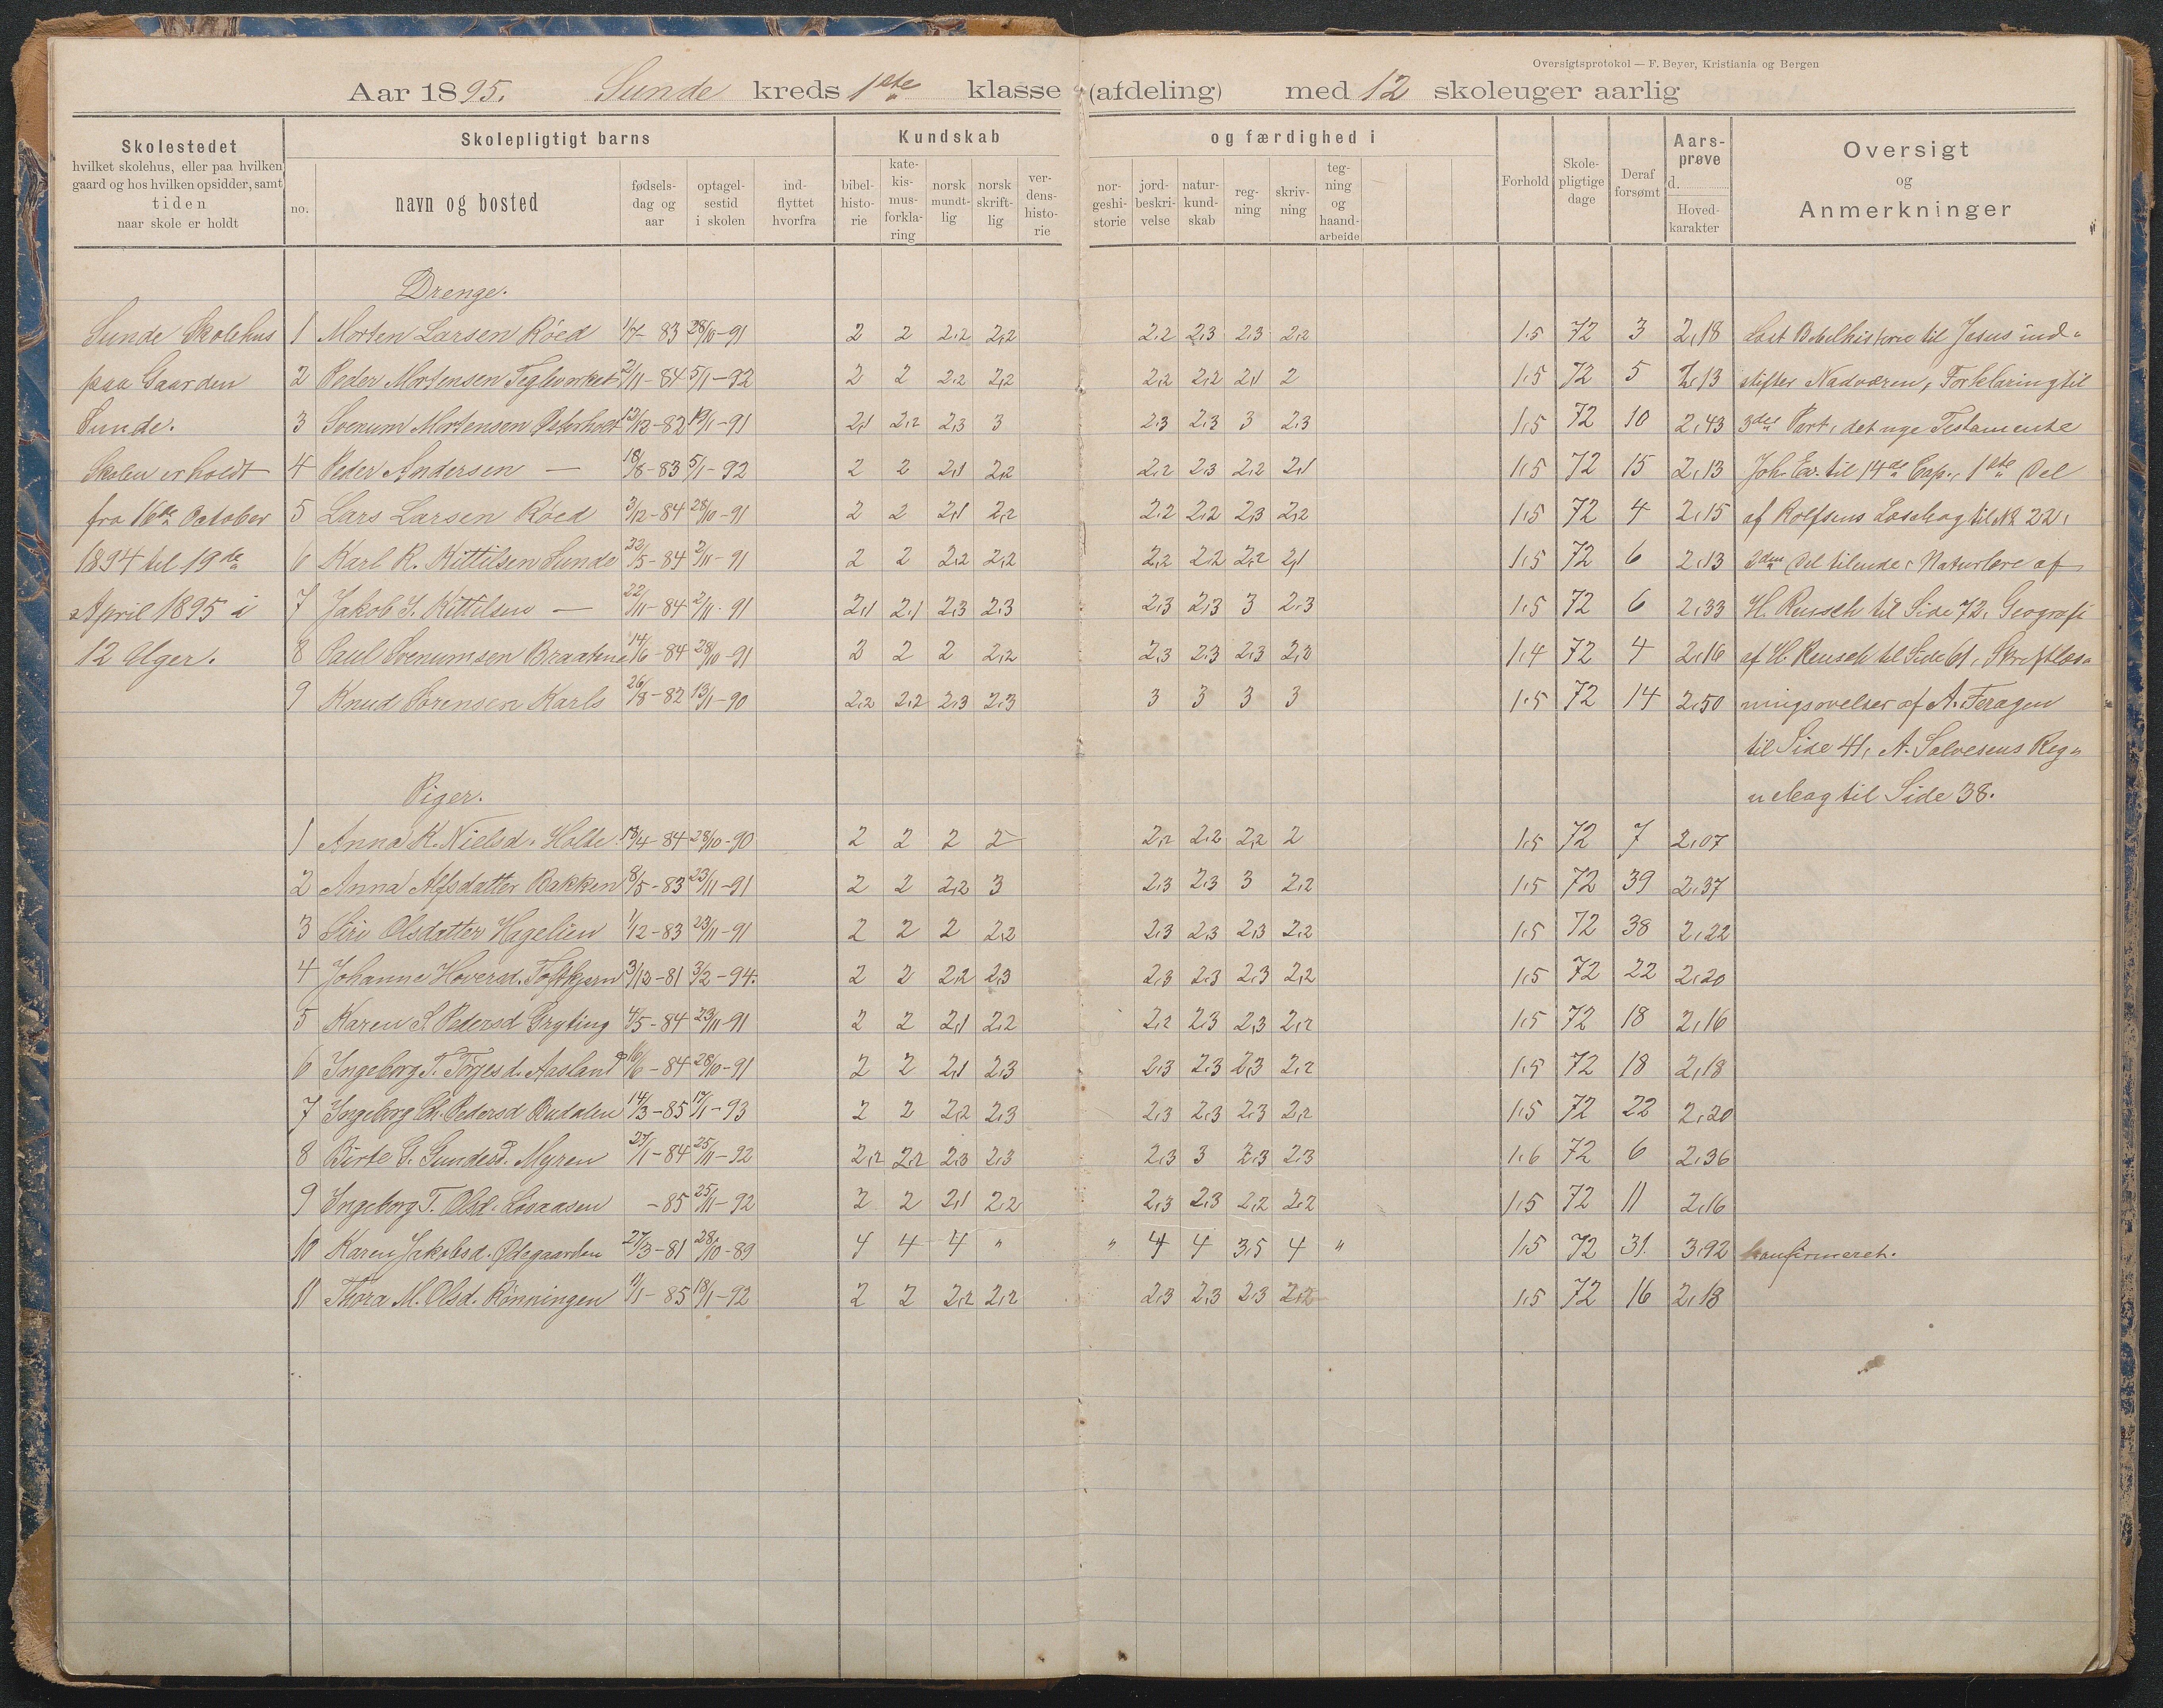 Oversigtsprotokol — F. Beyer, Kristiania og Bergen
Aar 1895. Sunde kreds 1ste klasse (afdeling) med 12 skoleuger aarlig
Skolestedet
hvilket skolehus, eller paa hvilken
gaard og hos hvilken opsidder, samt
tiden
naar skole er holdt
Skolepligtigt barns
no.
navn og bosted
fødsels-
dag og
aar
optagel-
sestid
i skolen
ind-
flyttet
hvorfra
Kundskab og færdighed i
bibel-
histo-
rie
kate-
kis-
mus-
forkla-
ring
norsk
mundt-
lig
norsk
skrift-
lig
ver-
dens-
histo-
rie
nor-
geshi-
storie
jord-
beskri-
velse
natur-
kund-
skab
reg-
ning
skriv-
ning
teg-
ning
og
haand-
arbeide
Forhold
Skole-
pligtige
dage
Deraf
forsømt
Aars-
prøve
d.
Hoved-
karakter
Oversigt
og
Anmerkninger
Sunde Skolehus
paa Gaarden
Sunde.
Skolen er holdt
fra 16de October
1894 til 19de
April 1895 i
12 Uger.
Drenge.
1 Morten Larsen Röed 1/7-83 28/10-91 2 2 2,2 2,2 2,2 2,3 2,3 2,2 1,5 72 3 2,18
2 Peder Mortensen Teglverket 2/11-84 5/1-92 2 2 2,2 2,2 2,2 2,2 2,1 2 1,5 72 5 2,13
3 Svenum Mortensen Peterholt 12/12-82 19/1-91 2,1 2,2 2,3 3 2,3 2,3 3 2,3 1,5 72 10 2,43
4 Peder Andersen — 18/8-83 5/1-92 2 2 2,1 2,2 2,2 2,3 2,2 2,1 1,5 72 15 2,13
5 Lars Larsen Röed 3/12-84 28/10-91 2 2 2,1 2,2 2,2 2,2 2,3 2,2 1,5 72 4 2,15
6 Karl R. Kittilsen Sunde 22/5-84 2/11-91 2 2 2,2 2,2 2,2 2,2 2,2 2,1 1,5 72 6 2,13
7 Jakob S. Kittilsen — 22/11-84 2/11-91 2,1 2,1 2,3 2,3 2,3 2,3 3 2,3 1,5 72 6 2,33
8 Paul Svenumsen Braatene 14/6-84 28/10-91 2 2 2 2,2 2,3 2,3 2,3 2,2 1,4 72 4 2,16
9 Knud Sörensen Karls 26/8-82 13/1-90 2,2 2,2 2,3 2,3 3 3 3 3 1,5 72 14 2,50
Læst Bibelhistorie til Jesus ind-
stifter Nadveren, Forklaring til
3die Part, det nye Testamente
Joh. Ev. til 14de Cap., 1ste Del
af Rolfsens Læsebog til № 22,
2den Del tilende, Naturlære af
H. Reusch til Side 72, Geografi
af H. Reusch til Side 61, Skriftlæs-
ningsøvelser af A. Feragen
til Side 41, A. Salvesens Reg-
nebog til Side 38.
Piger.
1 Anna K. Nielsd. Holte 18/4-84 28/10-90 2 2 2 2 2,2 2,2 2,2 2 1,5 72 7 2,07
2 Anna Alfsdatter Bakken 8/5-83 23/11-91 2 2 2,2 3 2,3 2,3 3 2,2 1,5 72 39 2,37
3 Siri Olsdatter Hagelien 1/12-83 23/11-91 2 2 2 2,2 2,3 2,3 2,3 2,2 1,5 72 38 2,22
4 Johanne Hoversd. Toftkjærn 3/12-81 3/2-94. 2 2 2,2 2,3 2,3 2,3 2,3 2,2 1,5 72 22 2,20
5 Karen S. Pedersd Gryting 4/5-84 23/11-91 2 2 2,1 2,2 2,2 2,3 2,3 2,2 1,5 72 18 2,16
6 Ingeborg T. Törjesd. Aasland 16/6-84 28/10-91 2 2 2,1 2,3 2,3 2,3 2,3 2,2 1,5 72 18 2,18
7 Ingeborg Ch. Pedersd Budalen 14/3-85 17/1-93 2 2 2,2 2,3 2,3 2,3 2,3 2,2 1,5 72 22 2,20
8 Birte G. Gundesd. Myren 27/1-84 25/11-92 2,2 2,2 2,3 2,3 2,3 3 2,3 2,3 1,6 72 6 2,36
9 Ingeborg T. Olsd. Løvaasen -85 25/11-92 2 2 2,1 2,2 2,3 2,3 2,2 2,2 1,5 72 11 2,16
10 Karen Jakobsd. Ødegaarden 27/3-81 28/10-89 4 4 4 " " 4 4 3,5 4 " 1,5 72 31 3,92 konfirmeret.
11 Thora M. Olsd. Rönningen 11/1-85 18/1-92 2 2 2,2 2,2 2,3 2,3 2,3 2,2 1,5 72 16 2,18